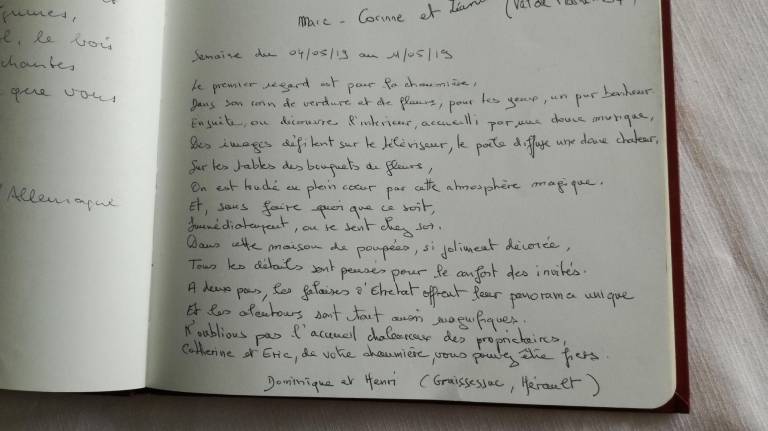 l, le bois
chantes
que vous
Allemagne
Marc - Corinne et
Semaine du 04/05/19 au 11/05/19
Le premier regard est pour la chaumière,
Dans son coin de verdure et de fleurs, pour les yeux, un pur bonheur.
Ensuite, on découvre l'intérieur, accueilli par une douce musique,
Des images défilent sur le téléviseur, le poële diffuse une douce chaleur,
Sur les tables des bouquets de fleurs,
On est touché en plein coeur par cette atmosphère magique.
Et, sans faire quoi que ce soit,
Immédiatement, on se sent chez soi.
Dans cette maison de poupées, si joliment décorée,
Tous les détails sont pensés pour le confort des invités.
A deux pas, les falaises d'Etretat offrent leur panorama unique
Et les alentours sont tout aussi magnifiques.
N'oublions pas l'accueil chaleureux des propriétaires,
Catherine et Eric, de votre chaumière, vous pouvez être fiers.
Dominique et Henri (Graissessac, Hérault)